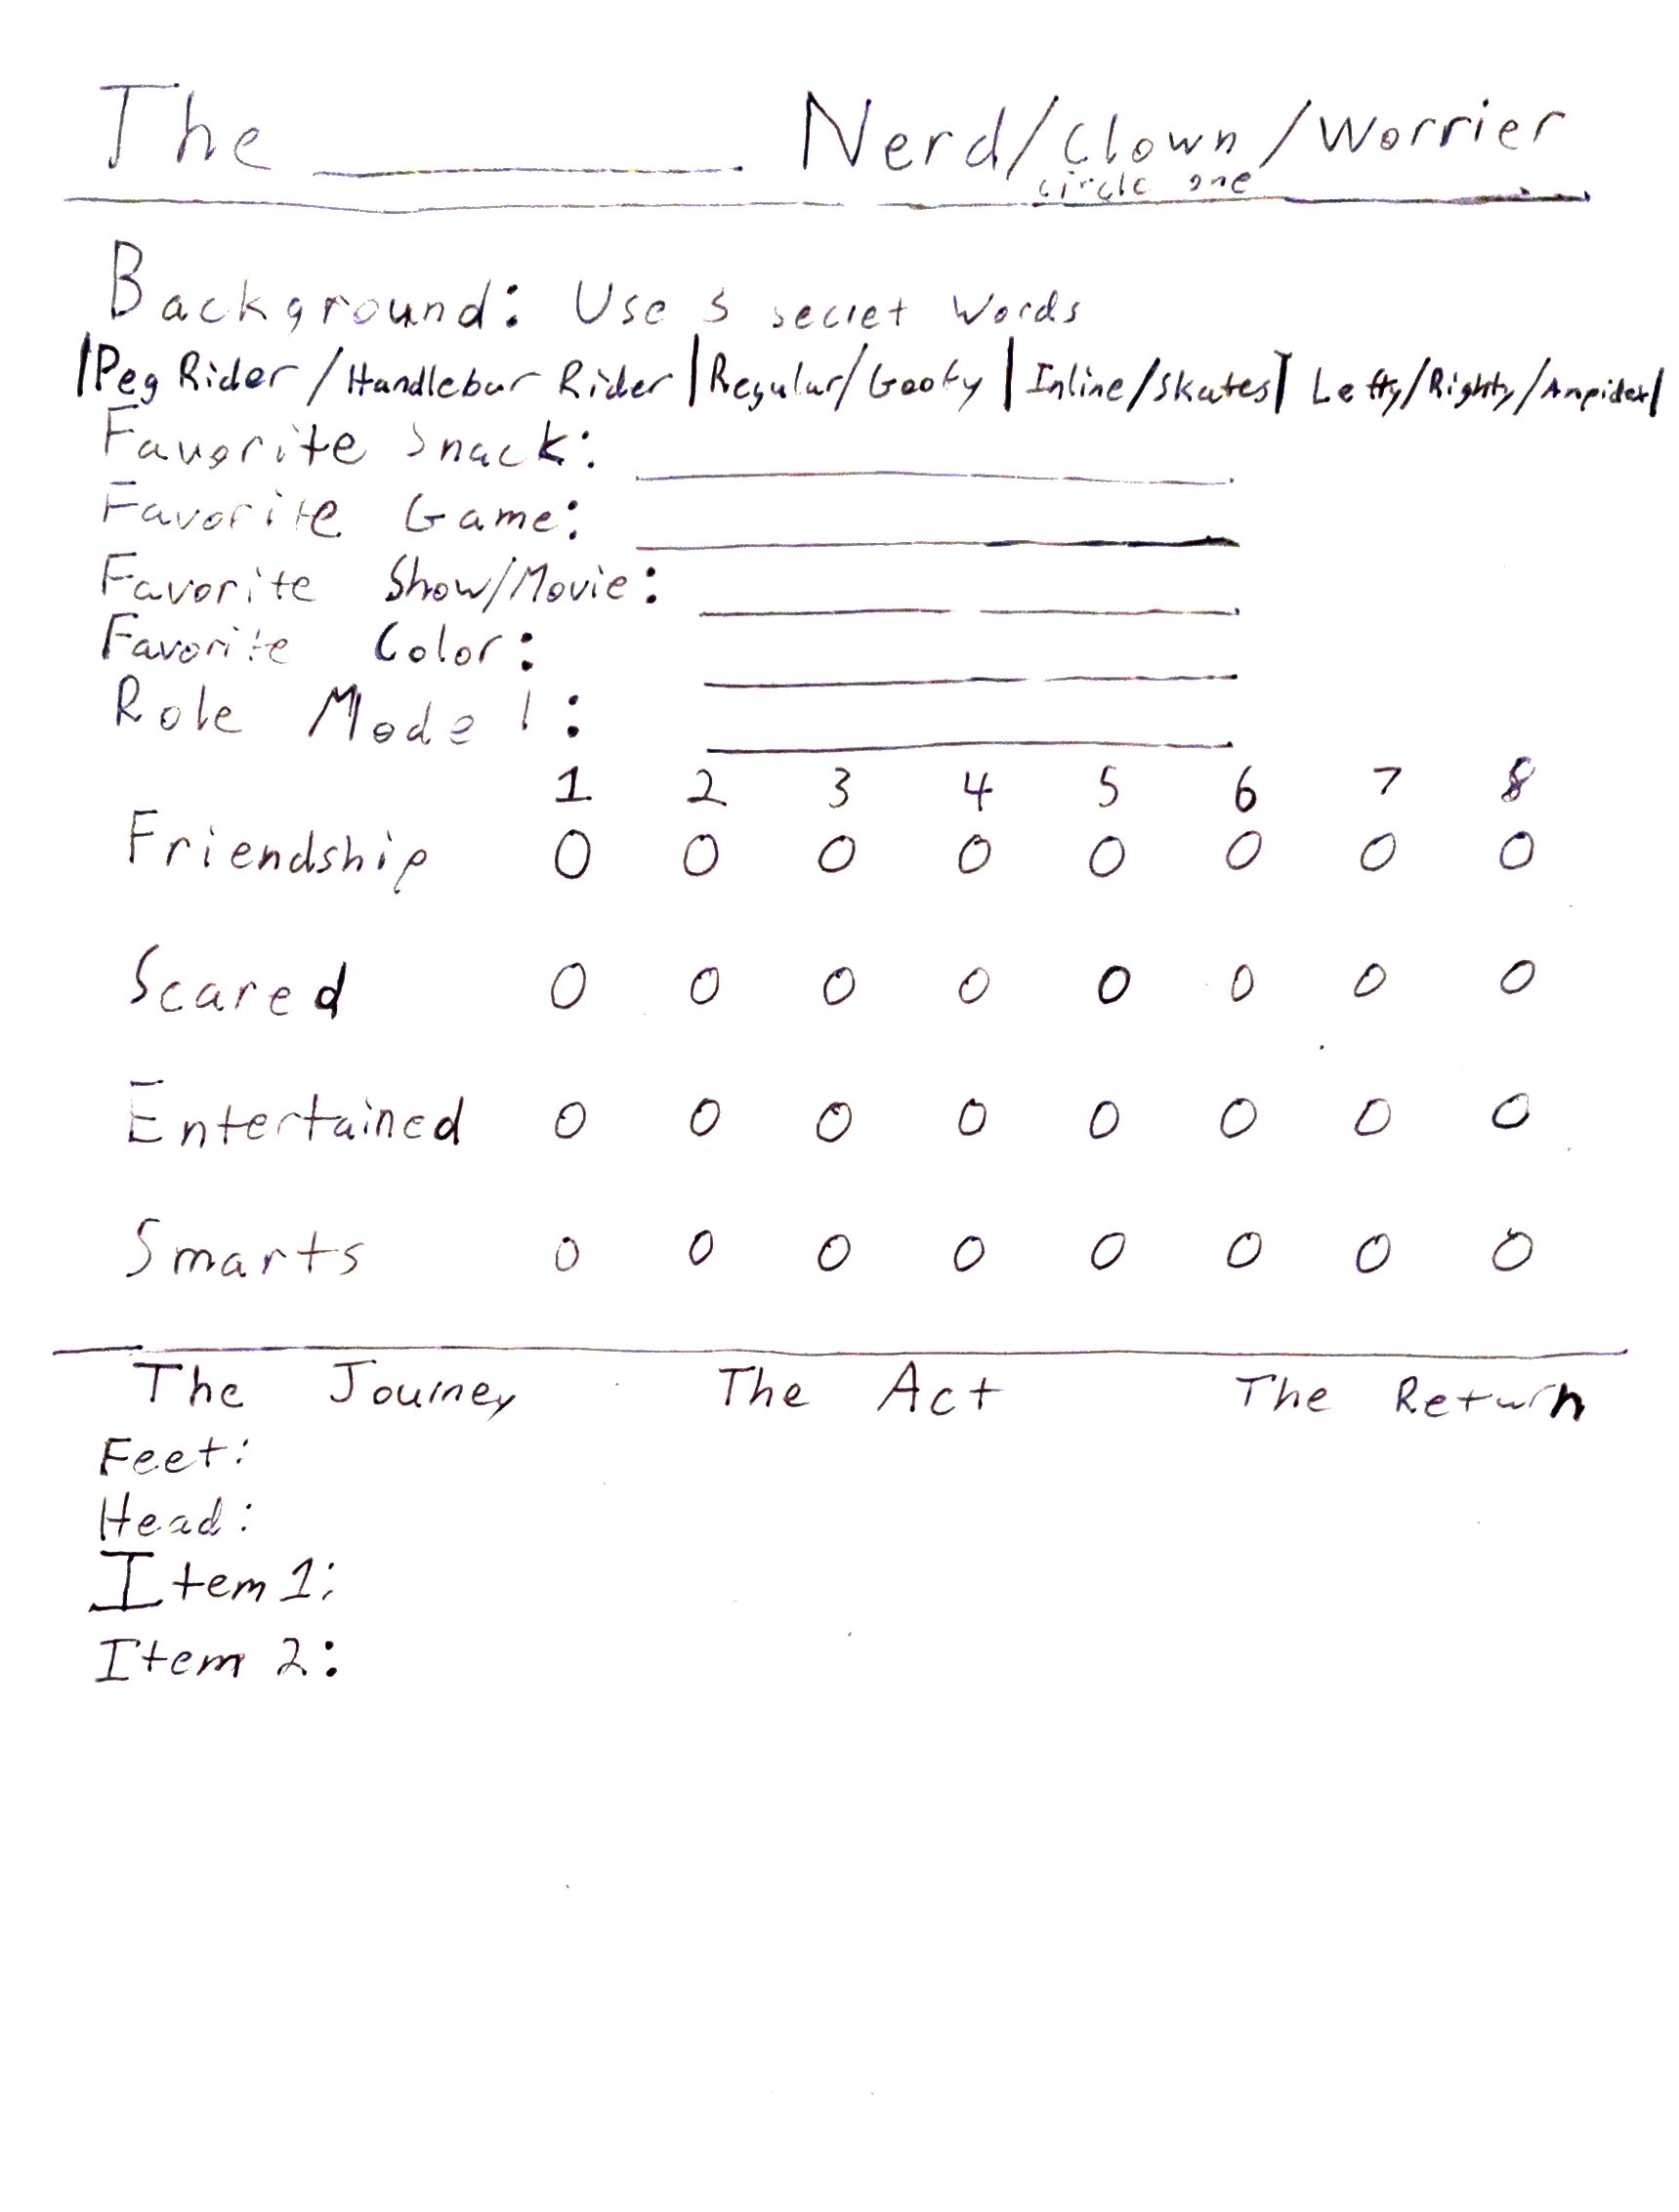 The ________. Nerd/Clown/Worrier
circle one
Background: Use 5 secret words
|Peg Rider/Handlebar Rider|Regular/Goofy|Inline/Skates|Lefty/Righty/Ampidex|
Favorite Snack: ________
Favorite Game: ________
Favorite Show/Movie: ________
Favorite Color: ________
Role Model: ________
1 2 3 4 5 6 7 8
Friendship O O O O O O O O
Scared O O O O O O O O
Entertained O O O O O O O O
Smarts O O O O O O O O
The Journey The Act The Return
Feet:
Head:
Item 1:
Item 2: